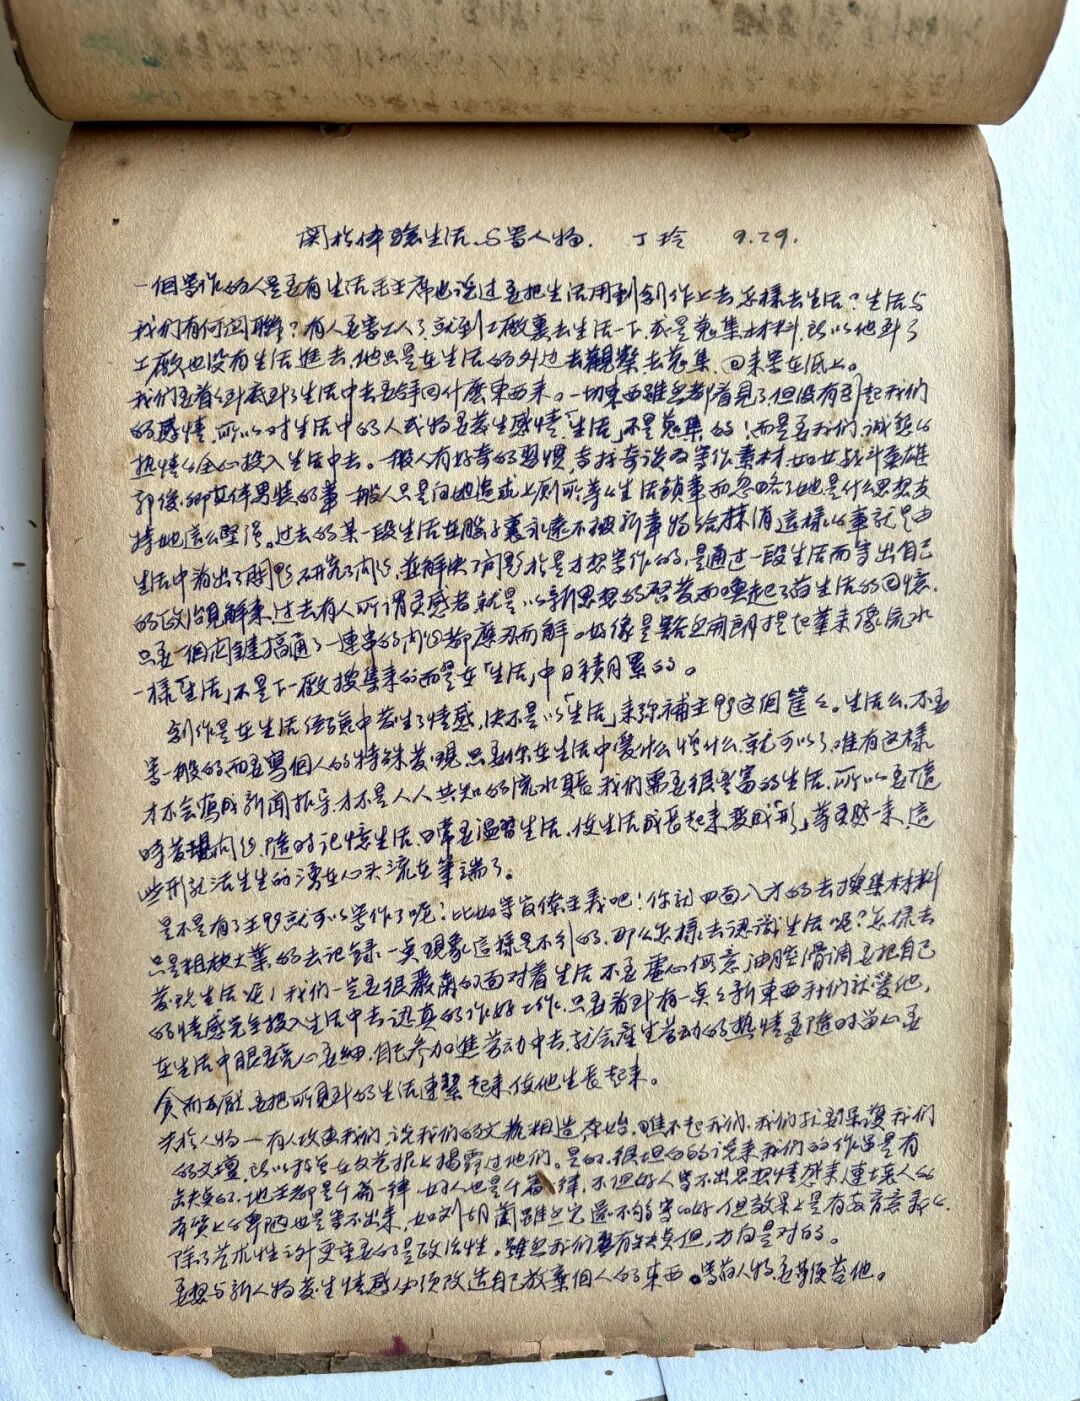 関於体驗生活、与写人物. 丁玲 9.29.
一個写作的人是要有生活毛主席也说过要把生活用到創作上去怎樣去生活？生活与
我們有何関聯？有人要写工人了就到工廠裏去生活一下或是蒐集材料所以他到了
工廠也没有生活進去，他只是在生活的外边去觀察去蒐集回来写在纸上。
我們要着到生活中去要拿回什麼東西来。一切東西雖然都看見了但没有引起我們
的感情，所以对生活中的人或物要發生感情「生活」不是蒐集的！而是要我們诚恳的
热情的全心投入生活中去。一般人有好奇的習慣，奇打奇谈为写作素材如女战斗英雄
郭俊卿女伴男裝的事一般人只是向她追求上厕所等的生活鎖事而忽略了她是什么思想支
持她這么堅强。过去的某一段生活在脑子裏永遠不被新事物给抹消這樣的事就是由
生活中看出了問題研究了問題並解决了問題於是才想写作的，是通过一段生活而写出自己
的政治見解来，过去有人所谓灵感者就是以新思想的啓發而唤起了旧生活的回憶，
只要一個関鍵搞通了一連串的問题都摩刃而解。好像是豁然開朗提起筆来像流水
一樣「生活」不是下一廠搜集来的而是在「生活」中日積月累的。
創作是在生活经验中发生了情感，决不是以「生活」来弥補主題这個筐。生活么，不要
写一般的，而要寫個人的特殊發現，只要你在生活中愛什么憎什么，就可以了，唯有这樣
才不会写成新闻报导，才不是人人共知的流水賬，我們需要很豐富的生活，所以要随
時發現问题，随时记憶生活，日常要温習生活，使生活成長起来，变成「形」等灵感一来，這
些形就活生生的湧在心头流在筆端了。
是不是有了主題就可以写作了呢？比如写官僚主義吧！你就四面八方的去搜集材料
只是粗枝大葉的去记錄一点現象這樣是不行的，那么怎樣去認識生活呢？怎樣去
發現生活呢！我們一定要很嚴肅的面对着生活不要虚心假意油腔滑調要把自己
的情感完全投入生活中去認真的作好工作，只要看到有一点新東西我們就愛他，
在生活中眼要亮心要細，自己参加進劳动中去，就会產生劳动的热情要随时留心要
貪而不厭，要把所見到的生活連繫起来，使他生长起来。
关於人物一有人攻击我們，说我們的文艺粗造，原始，瞧不起我們，我們
的文壇，所以我曾在文艺报上揭露过他們。是的，很坦白的说来我們的作品是有
缺点的，地主都是千篇一律，好人也是千篇一律，不但好人写不出思想情感来連壞人的
本質上的卑陋也是写不出来，如刘胡蘭雖然還不够写的好，但效果上是有教育意義的，
除了艺术性之外更重要的是政治性。雖然我們有缺点但，方向是对的。
要想与新人物發生情感必须改造自己放棄個人的東西。写旧人物要